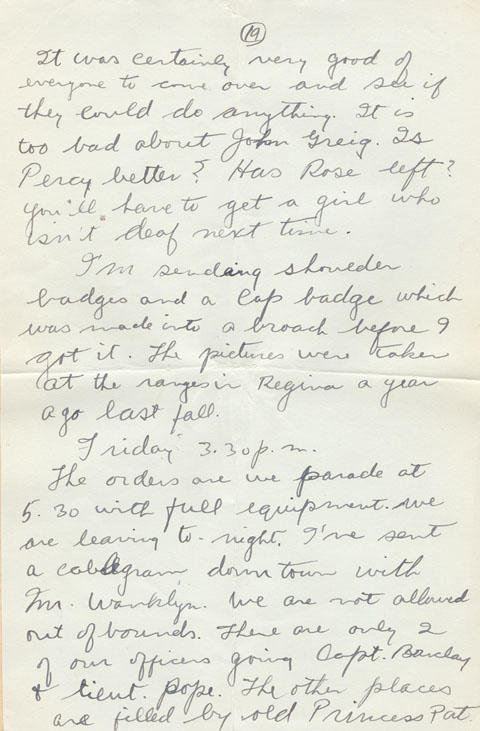 19
It was certainly very good of
everyone to come over and see if
they could do anything. It is
too bad about John Greig. Is
Percy better? Has Rose left?
you'll have to get a girl who
isn't deaf next time.
I'm sending shoulder
badges and a Cap badge which
was made into a broach before I
got it. The pictures were taken
at the ranges in Regina a year
ago last fall.
Friday 3.30 p.m.
The orders are we parade at
5.30 with full equipment. We
are leaving to-night. I've sent
a cablegram down town with
Mr. Wanklyn. We are not allowed
out of bounds. There are only 2
of our officers going Capt. Barclay
& Lieut. Pope. The other places
are filled by old Princess Pat.